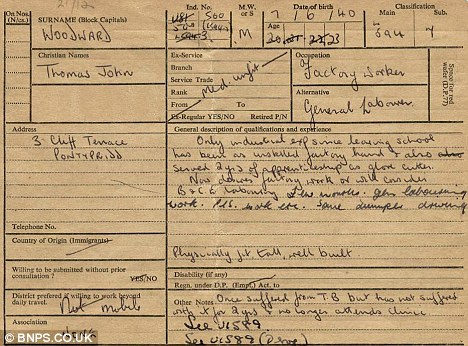 On Nos. (N/cs.)
21/12
SURNAME (Block Capitals)
WOODWARD
Ind. No.
560
M.W. or S
M
Date of birth
7/6/40
Age
Classification
Main
Sub.
Christian Names
Thomas John
Ex-Service
Branch
Service Trade
Rank
From
To
Ex-Regular YES/NO
Retired P/N
Occupation
Factory Worker
Alternative
General Labourer
Space for red wafer (D.P.77)
Address
3 Cliff Terrace
PONTYPRIDD
Telephone No.
Country of Origin (Immigrants)
Willing to be submitted without prior consultation ?
YES/NO
District prefered if willing to work beyond daily travel.
Not mobile
Association
General description of qualifications and experience
Only industrial experience leaving school
has been as unskilled factory hand & also
served 2 yrs of apprenticeship as glove cutter.
Now desires factory work or will consider
B & C E labouring few months. gen labouring
work. some dumper driving
Physically fit tall, well built
Disability (if any)
Regn. under D.P. (Empt.) Act. to
Other Notes
Once suffered from TB but has not suffered
with it for 2 yrs & no longer attends clinic
See UI 589.
See UI 589
© BNPS.CO.UK